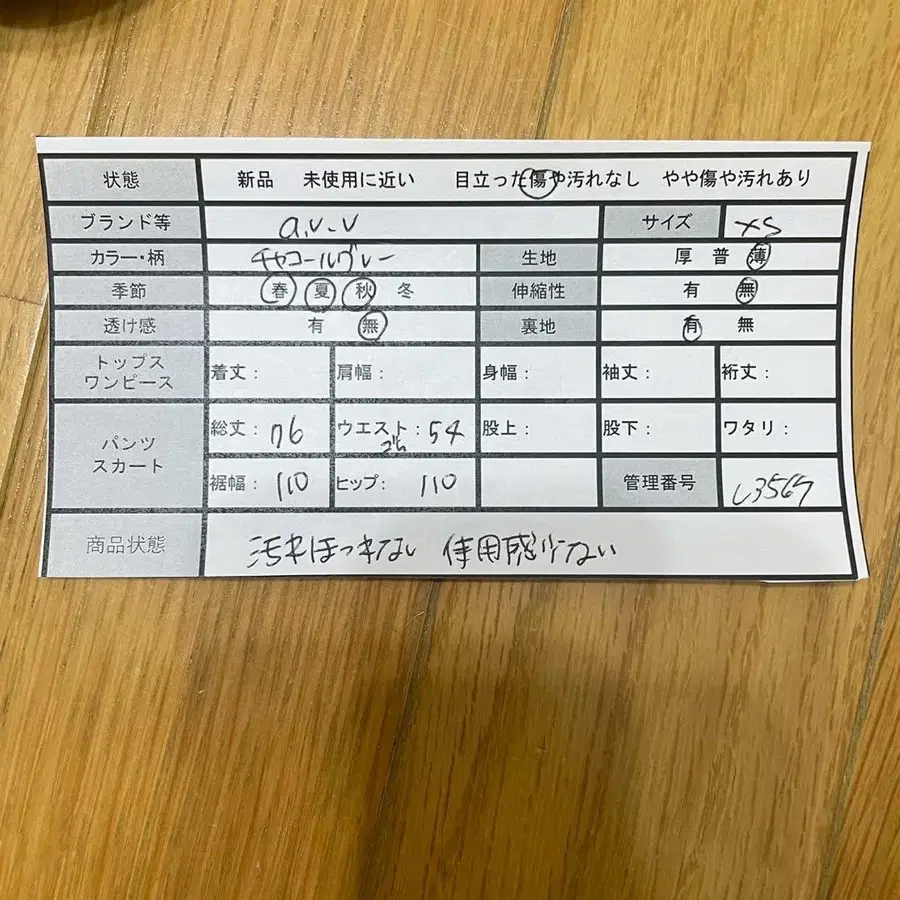 状態 新品 未使用に近い 目立った傷や汚れなし やや傷や汚れあり
ブランド等 a.v.v サイズ XS
カラー・柄 チャコールグレー 生地 厚 普 薄
季節 春 夏 秋 冬 伸縮性 有 無
透け感 有 無 裏地 有 無
トップス
ワンピース 着丈: 肩幅: 身幅: 袖丈: 裄丈:
パンツ
スカート 総丈: 76 ウエスト: 54 股上: 股下: ワタリ:
ゴム
裾幅: 110 ヒップ: 110 管理番号
商品状態 汚れほつれなし 使用感少ない